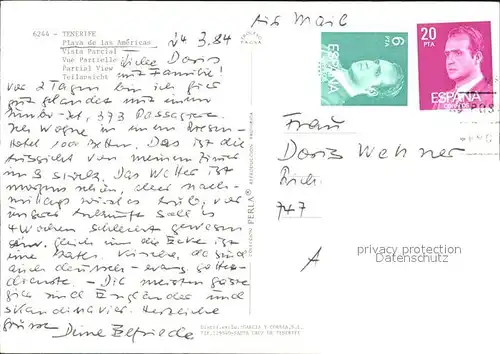 6244 - TENERIFE
Playa de las Américas
Vista Parcial
Vue Partielle
Partial View
Teilansicht
24 3. 84
Liebe Doris
und Familie!
vor 2 Tagen bin ich hier
gut gelandet mit einem
Jumbo-Jet, 393 Passagiere.
Ich wohne in einem Riesen-
Hotel 1000 Betten. Das ist die
Aussicht von meinem Zimmer
im 3 Stock. Das Wetter ist
morgens schön, aber nach-
mittags wird es trüb, vor
unserer Ankunft soll es
4 Wochen schlecht gewesen
sein. Gleich um die Ecke ist
eine Kath. Kirche, da sind
auch deutsch-evang. Gottes-
dienste. - Die meisten Gäste
hier sind Engländer und
Skandinavier. Herzliche
Grüsse Deine Elfriede
EXCLUSIVAS PERLA® REPRODUCCION PROHIBIDA
Air Mail
6 PTA
ESPAÑA
CORREOS
20 PTA
ESPAÑA
CORREOS
Frau
Doris Wehner
747
A
privacy protection
Datenschutz